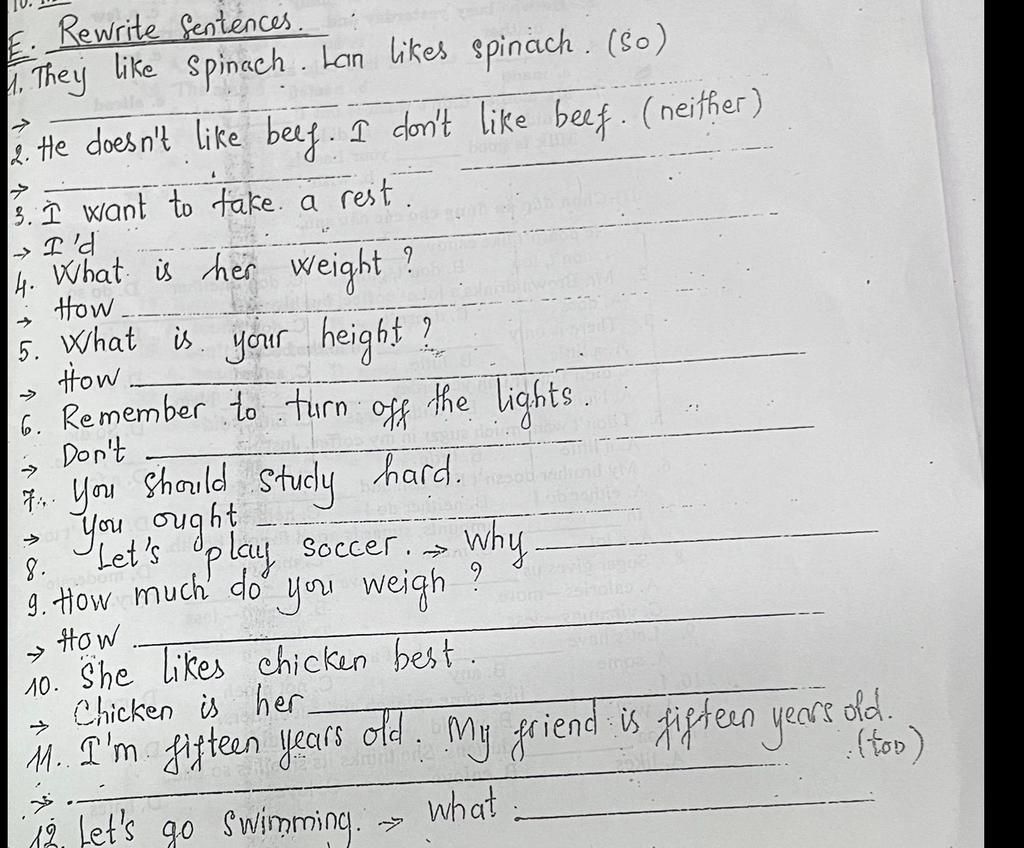 10.
E. Rewrite Sentences.
1. They like spinach. Lan likes spinach. (so)
→
2. He doesn't like beef. I don't like beef. (neither)
→
3. I want to take a rest.
→ I'd
4. What is her weight?
→ How
5. What is your height?
→ How
6. Remember to turn off the lights
→ Don't
7. You should study hard.
→ You ought
8. Let's play soccer. → Why
9. How much do you weigh?
→ How
10. She likes chicken best.
→ Chicken is her
11. I'm fifteen years old. My friend is fifteen years old.
(too)
→
12. Let's go swimming. → what